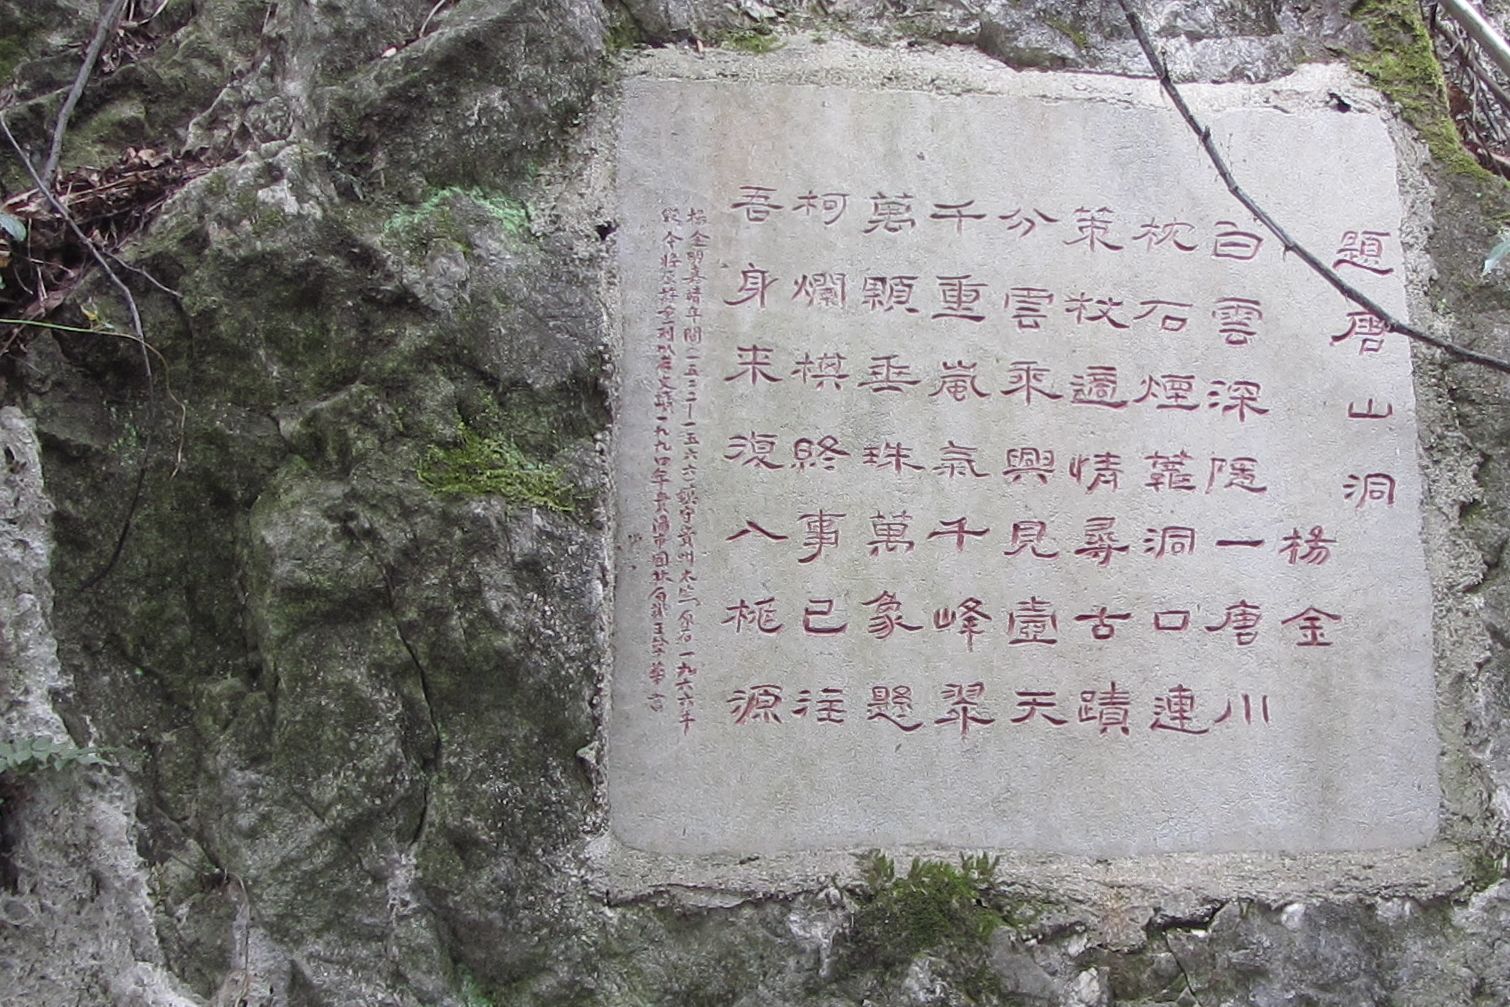 題唐山洞
楊金
白雲深隱一唐川
枕石煙蘿洞口連
策杖適情尋古蹟
分雲乘興見壺天
千重嵐氣千峰翠
萬顆垂珠萬象懸
柯爛棋終事已往
吾身来復入桃源
楊金明嘉靖年間一五二二－一五六六鎮守貴州太監原石一九六六年
毀今將其詩重刻以存文一九九四年貴陽市園林局